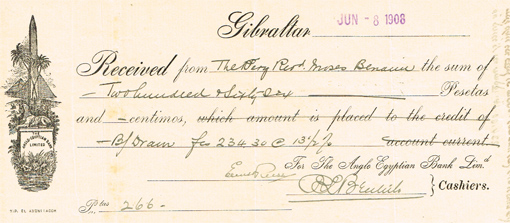 Gibraltar JUN - 8 1908
Received from The Very Revd. Moses Benaim the sum of
- Two hundred & Sixty six Pesetas
and - centimes, which amount is placed to the credit of
- B/ Drawn fcs 234.30 @ 13½% account current
For The Anglo Egyptian Bank Limd.
Cashiers.
Ptas 266 -
THE
ANGLO EGYPTIAN BANK
LIMITED